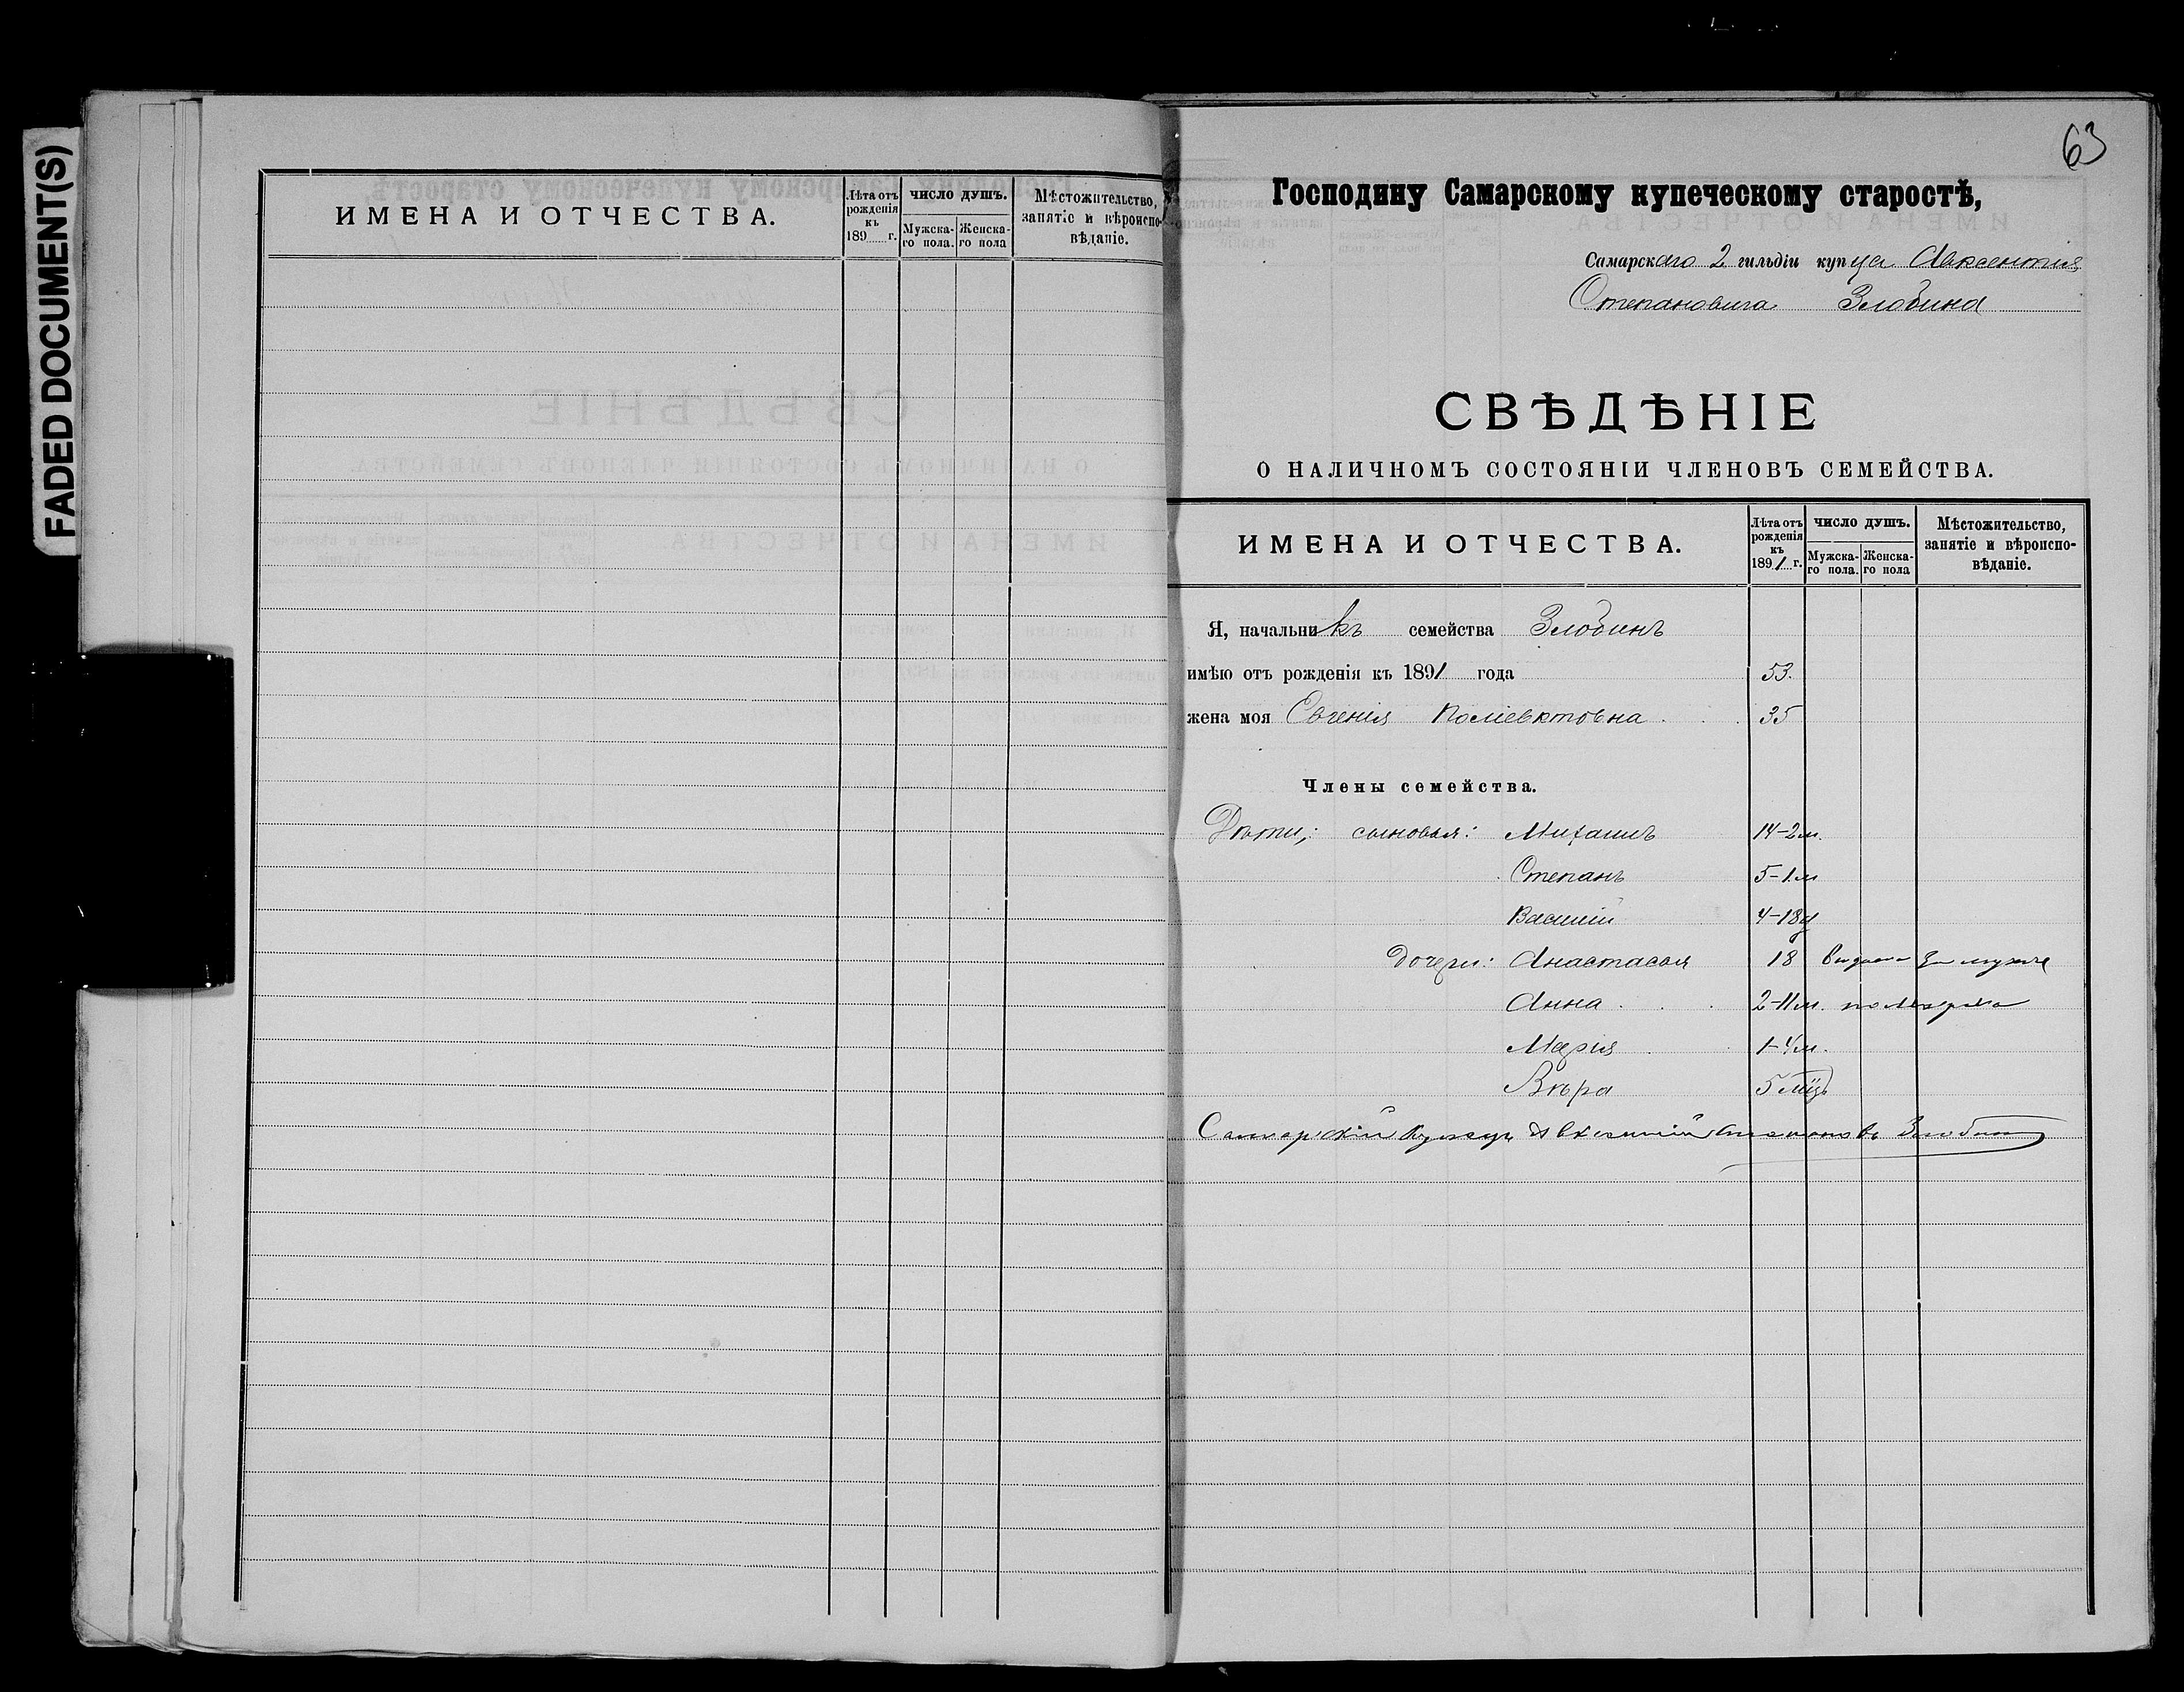 FADED DOCUMENT(S)
ИМЕНА И ОТЧЕСТВА.
Лѣта отъ рожденія къ 189 г.
ЧИСЛО ДУШЪ.
Мужска-го пола.
Женска-го пола
Мѣстожительство, занятіе и вѣроиспо-вѣданіе.
63
Господину Самарскому купеческому старостѣ,
Самарскаго 2 гильдіи купца Авксентия
Степановича Злобина
СВѢДѢНІЕ
О НАЛИЧНОМЪ СОСТОЯНІИ ЧЛЕНОВЪ СЕМЕЙСТВА.
ИМЕНА И ОТЧЕСТВА.
Лѣта отъ рожденія къ 1891 г.
ЧИСЛО ДУШЪ.
Мужска-го пола.
Женска-го пола
Мѣстожительство, занятіе и вѣроиспо-вѣданіе.
Я, начальникъ семейства Злобинъ
имѣю отъ рожденія къ 1891 года 53.
жена моя Евгенія Поліевктовна 35
Члены семейства.
Дѣти; сыновья: Михаилъ 14-2м.
Степанъ 5-1м
Василій 4-18д
дочери: Анастасья 18 выдана за мужъ
Анна 2-11м. померла
Марія 1-4м.
Вѣра 5 мцъ
Самарскій Купецъ Авксентій Степановъ Злобинъ